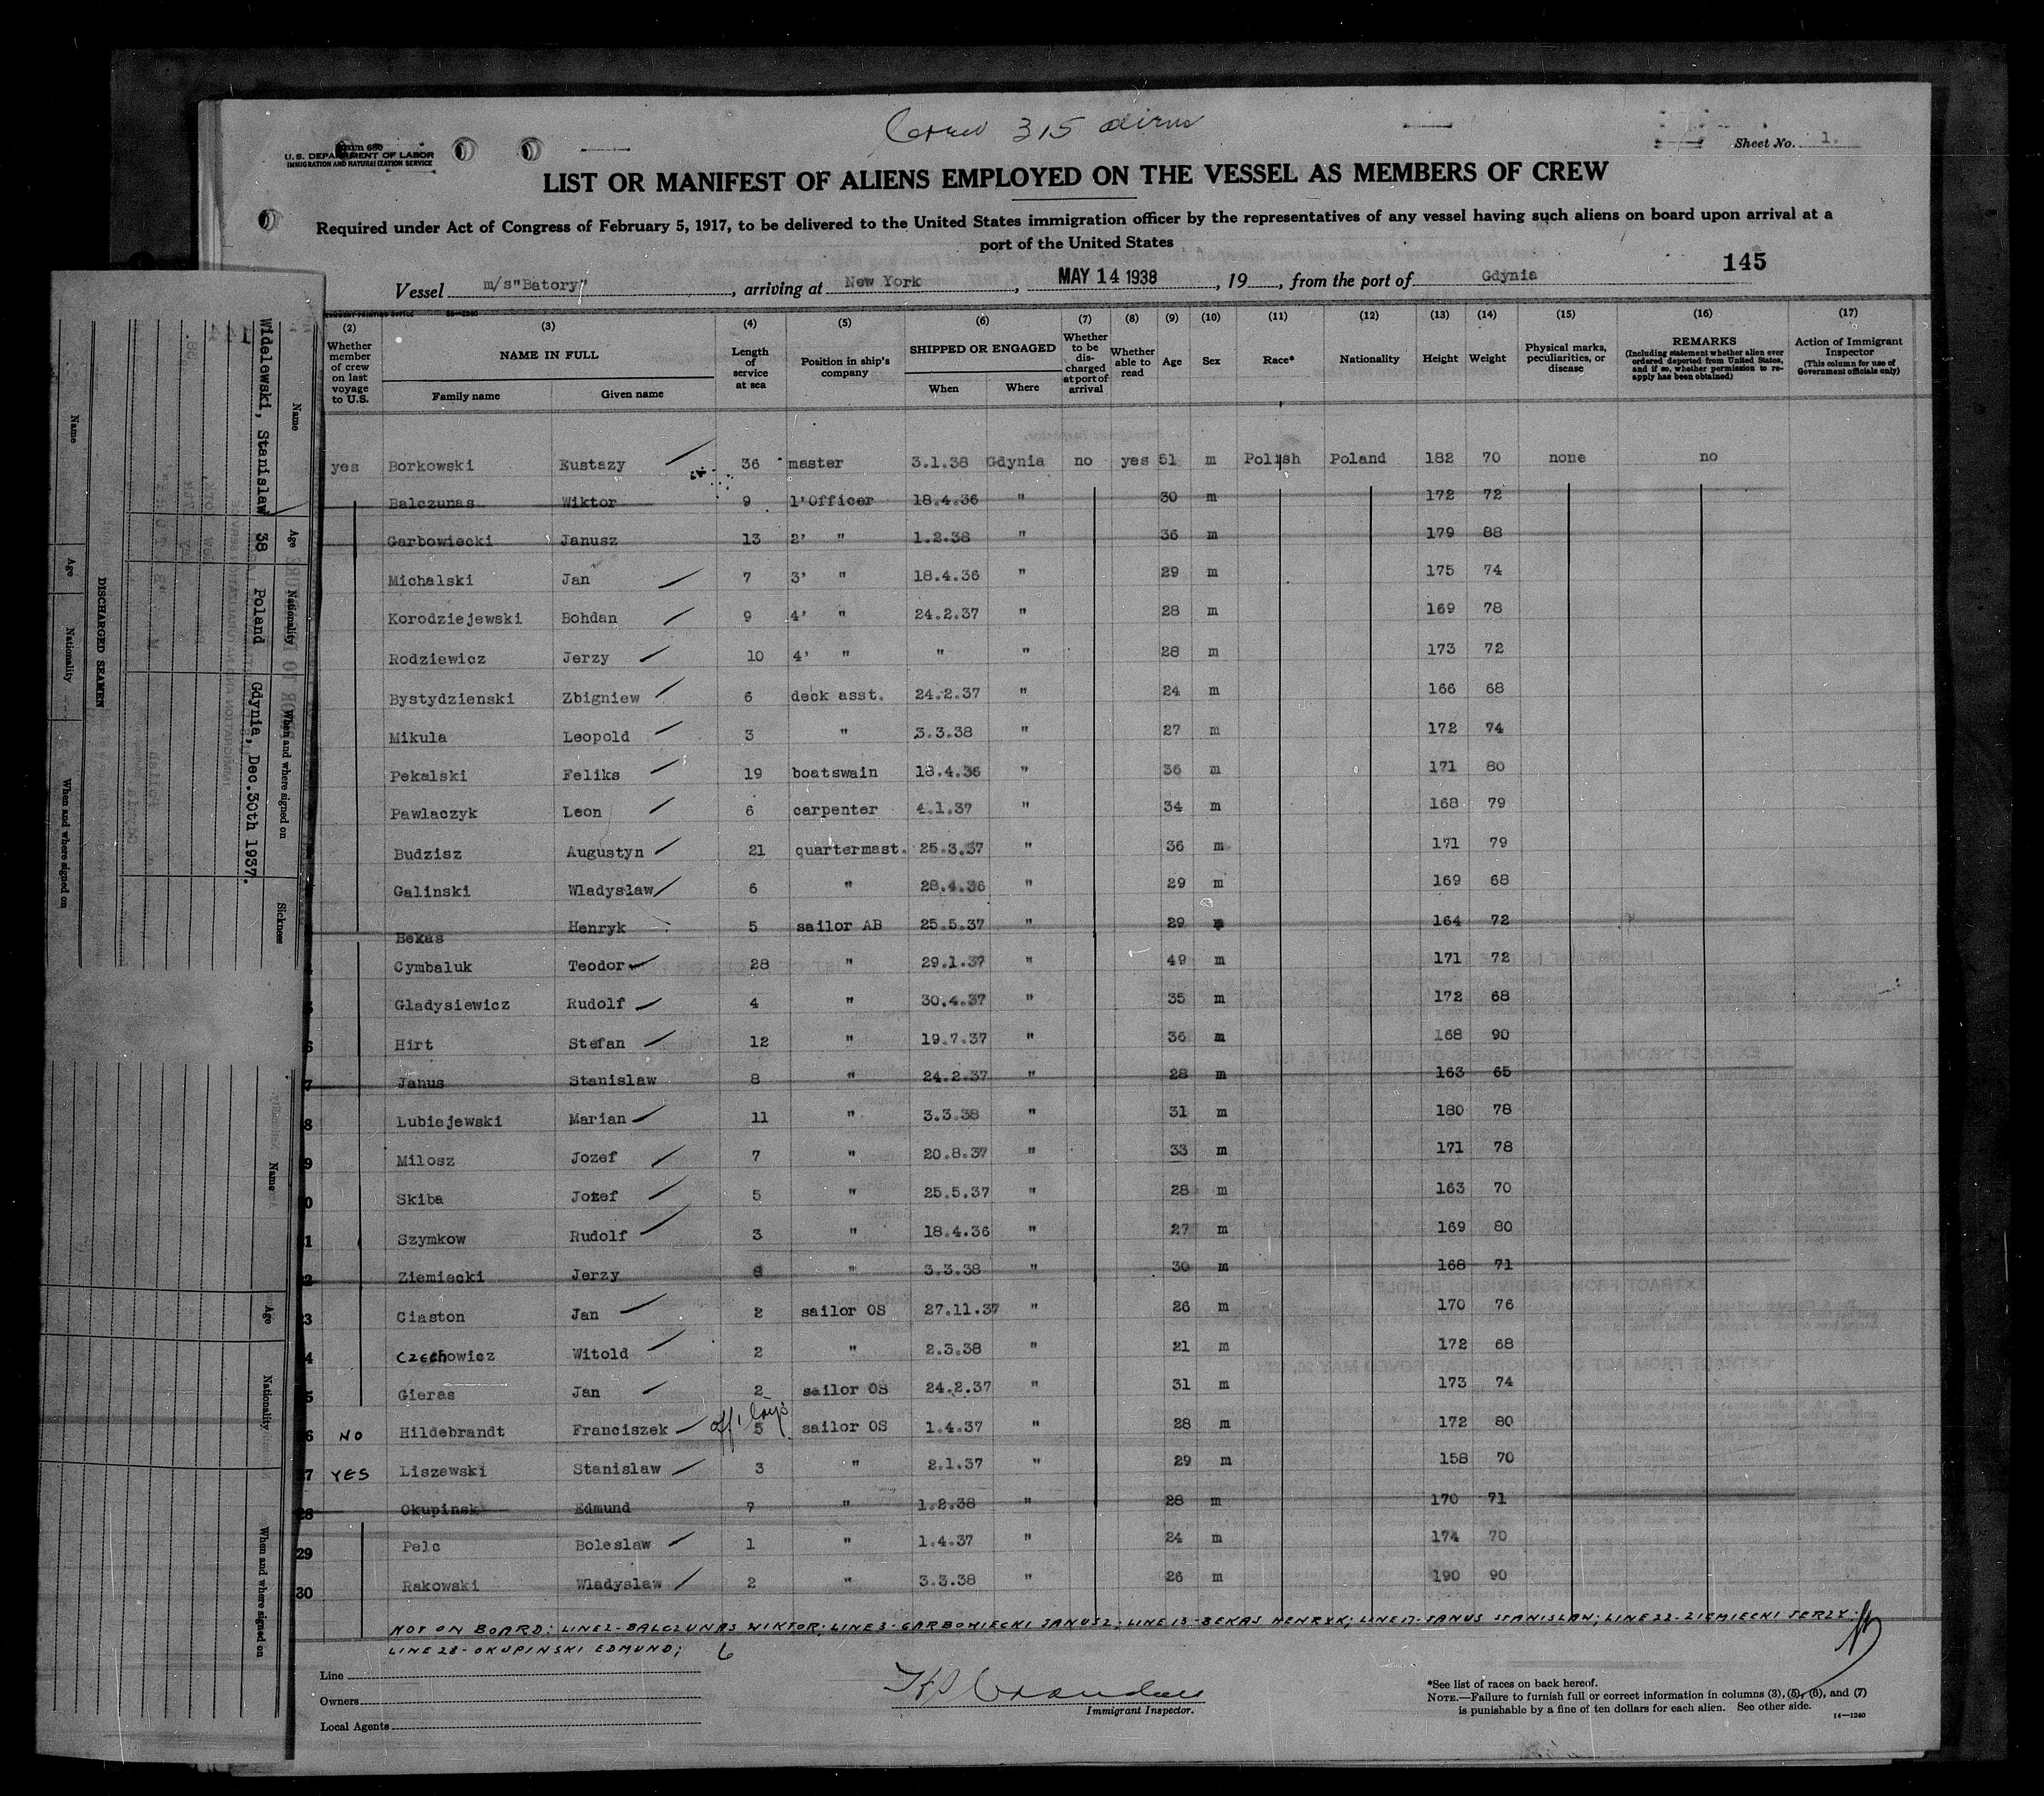 Crew 315 aliens
Form 680
U.S. DEPARTMENT OF LABOR
IMMIGRATION AND NATURALIZATION SERVICE
Sheet No. 1.
LIST OR MANIFEST OF ALIENS EMPLOYED ON THE VESSEL AS MEMBERS OF CREW
Required under Act of Congress of February 5, 1917, to be delivered to the United States immigration officer by the representatives of any vessel having such aliens on board upon arrival at a
port of the United States
145
Vessel m/s"Batory", arriving at New York, MAY 14 1938, 19, from the port of Gdynia
(2) (3) (4) (5) (6) (7) (8) (9) (10) (11) (12) (13) (14) (15) (16) (17)
Whether member of crew on last voyage to U.S. NAME IN FULL Family name Given name Length of service at sea Position in ship's company SHIPPED OR ENGAGED When Where Whether to be discharged at port of arrival Whether able to read Age Sex Race* Nationality Height Weight Physical marks, peculiarities, or disease REMARKS (Including statement whether alien ever ordered deported from United States, and if so, whether permission to reapply has been obtained) Action of Immigrant Inspector (This column for use of Government officials only)
yes Borkowski Eustazy 36 master 3.1.38 Gdynia no yes 51 m Polish Poland 182 70 none no
Balczunas Wiktor 9 1'Officer 18.4.36 " 30 m 172 72
Garbowiecki Janusz 13 2' " 1.2.38 " 36 m 179 88
Michalski Jan 7 3' " 18.4.36 " 29 m 175 74
Korodziejewski Bohdan 9 4' " 24.2.37 " 28 m 169 78
Rodziewicz Jerzy 10 4' " " " 28 m 173 72
Bystydzienski Zbigniew 6 deck asst. 24.2.37 " 24 m 166 68
Mikula Leopold 3 " 3.3.38 " 27 m 172 74
Pekalski Feliks 19 boatswain 18.4.36 " 36 m 171 80
Pawlaczyk Leon 6 carpenter 4.1.37 34 m 168 79
Budzisz Augustyn 21 quartermast. 25.3.37 " 36 m 171 79
Galinski Wladyslaw 6 " 28.4.36 " 29 m 169 68
Bekas Henryk 5 sailor AB 25.5.37 " 29 m 164 72
Cymbaluk Teodor 28 " 29.1.37 " 49 m 171 72
Gladysiewicz Rudolf 4 " 30.4.37 " 35 m 172 68
6 Hirt Stefan 12 " 19.7.37 " 36 m 168 90
7 Janus Stanislaw 8 " 24.2.37 " 28 m 163 65
8 Lubiejewski Marian 11 " 3.3.38 " 31 m 180 78
9 Milosz Jozef 7 " 20.8.37 " 33 m 171 78
0 Skiba Jozef 5 " 25.5.37 " 28 m 163 70
1 Szymkow Rudolf 3 " 18.4.36 " 27 m 169 80
2 Ziemiecki Jerzy 6 " 3.3.38 " 30 m 168 71
3 Ciaston Jan 2 sailor OS 27.11.37 " 26 m 170 76
4 Czechowicz Witold 2 " 2.3.38 " 21 m 172 68
5 Gieras Jan 2 sailor OS 24.2.37 " 31 m 173 74
6 NO Hildebrandt Franciszek 5 sailor OS 1.4.37 " 28 m 172 80
27 YES Liszewski Stanislaw 3 " 2.1.37 " 29 m 158 70
28 Okupinski Edmund 7 " 1.2.38 " 28 m 170 71
29 Pelc Boleslaw 1 " 1.4.37 " 24 m 174 70
30 Rakowski Wladyslaw 2 " 3.3.38 " 26 m 190 90
NOT ON BOARD: LINE 2 - BALCZUNAS WIKTOR; LINE 3 - GARBOWIECKI JANUSZ; LINE 13 - BEKAS HENRYK; LINE 17 - JANUS STANISLAW; LINE 22 - ZIEMIECKI JERZY;
LINE 28 - OKUPINSKI EDMUND; 6
Line
Owners
Local Agents
Immigrant Inspector.
*See list of races on back hereof.
NOTE.—Failure to furnish full or correct information in columns (3), (5), (6), and (7)
is punishable by a fine of ten dollars for each alien. See other side.
14—1240
Name Age Nationality When and where signed on Sickness
Widelewski, Stanislaw 38 Poland Gdynia, Dec.30th 1937.
DISCHARGED SEAMEN
Name Age Nationality When and where signed on
Name Age Nationality When and where signed on